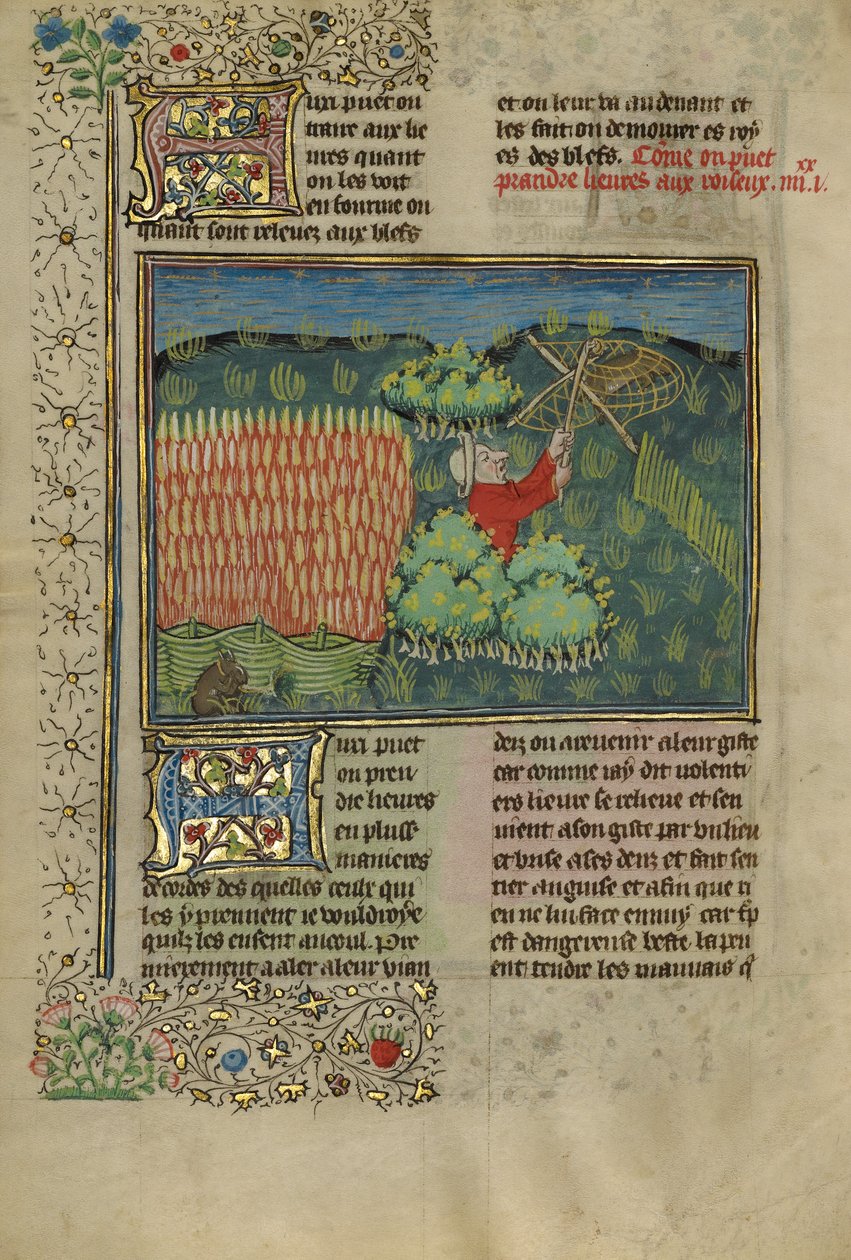 Auxi puet on
traire aux lie
ures quant
on les voit
en fourme ou
quant sont releuez aux blefs
et on leur va au deuant et
les fait on demourer es roy
es des blefs. Cōme on puet
prandre lieures aux voiseux. xx
iiii. v.
Auxi puet
on pren
dre lieures
en pluss
manieres
de cordes des quelles ceulx qui
les y prennent ie vouldroye
quilz les eussent au coul. Pre
mierement a aler a leur vian
dez ou a reuenir a leur giste
car comme iay dit volenti
ers lieure se relieue et sen
uient a son giste par vn lieu
et brise a ses denz et fait sen
tier a
et afin que ri
en ne lui face ennuy car
est dangereuse beste la peu
ent tendre les mauuais